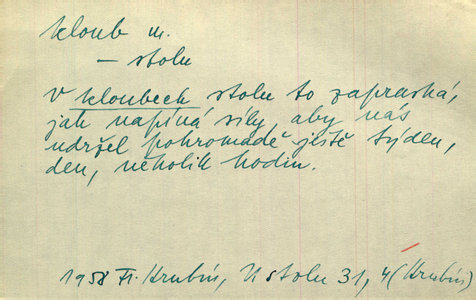 kloub m.
– stolu
V kloubech stolu to zapraská,
jak napíná síly, aby nás
udržel pohromadě ještě týden,
den, několik hodin.
1958 Fr. Hrubín, U stolu 31, 4 (Hrubín)